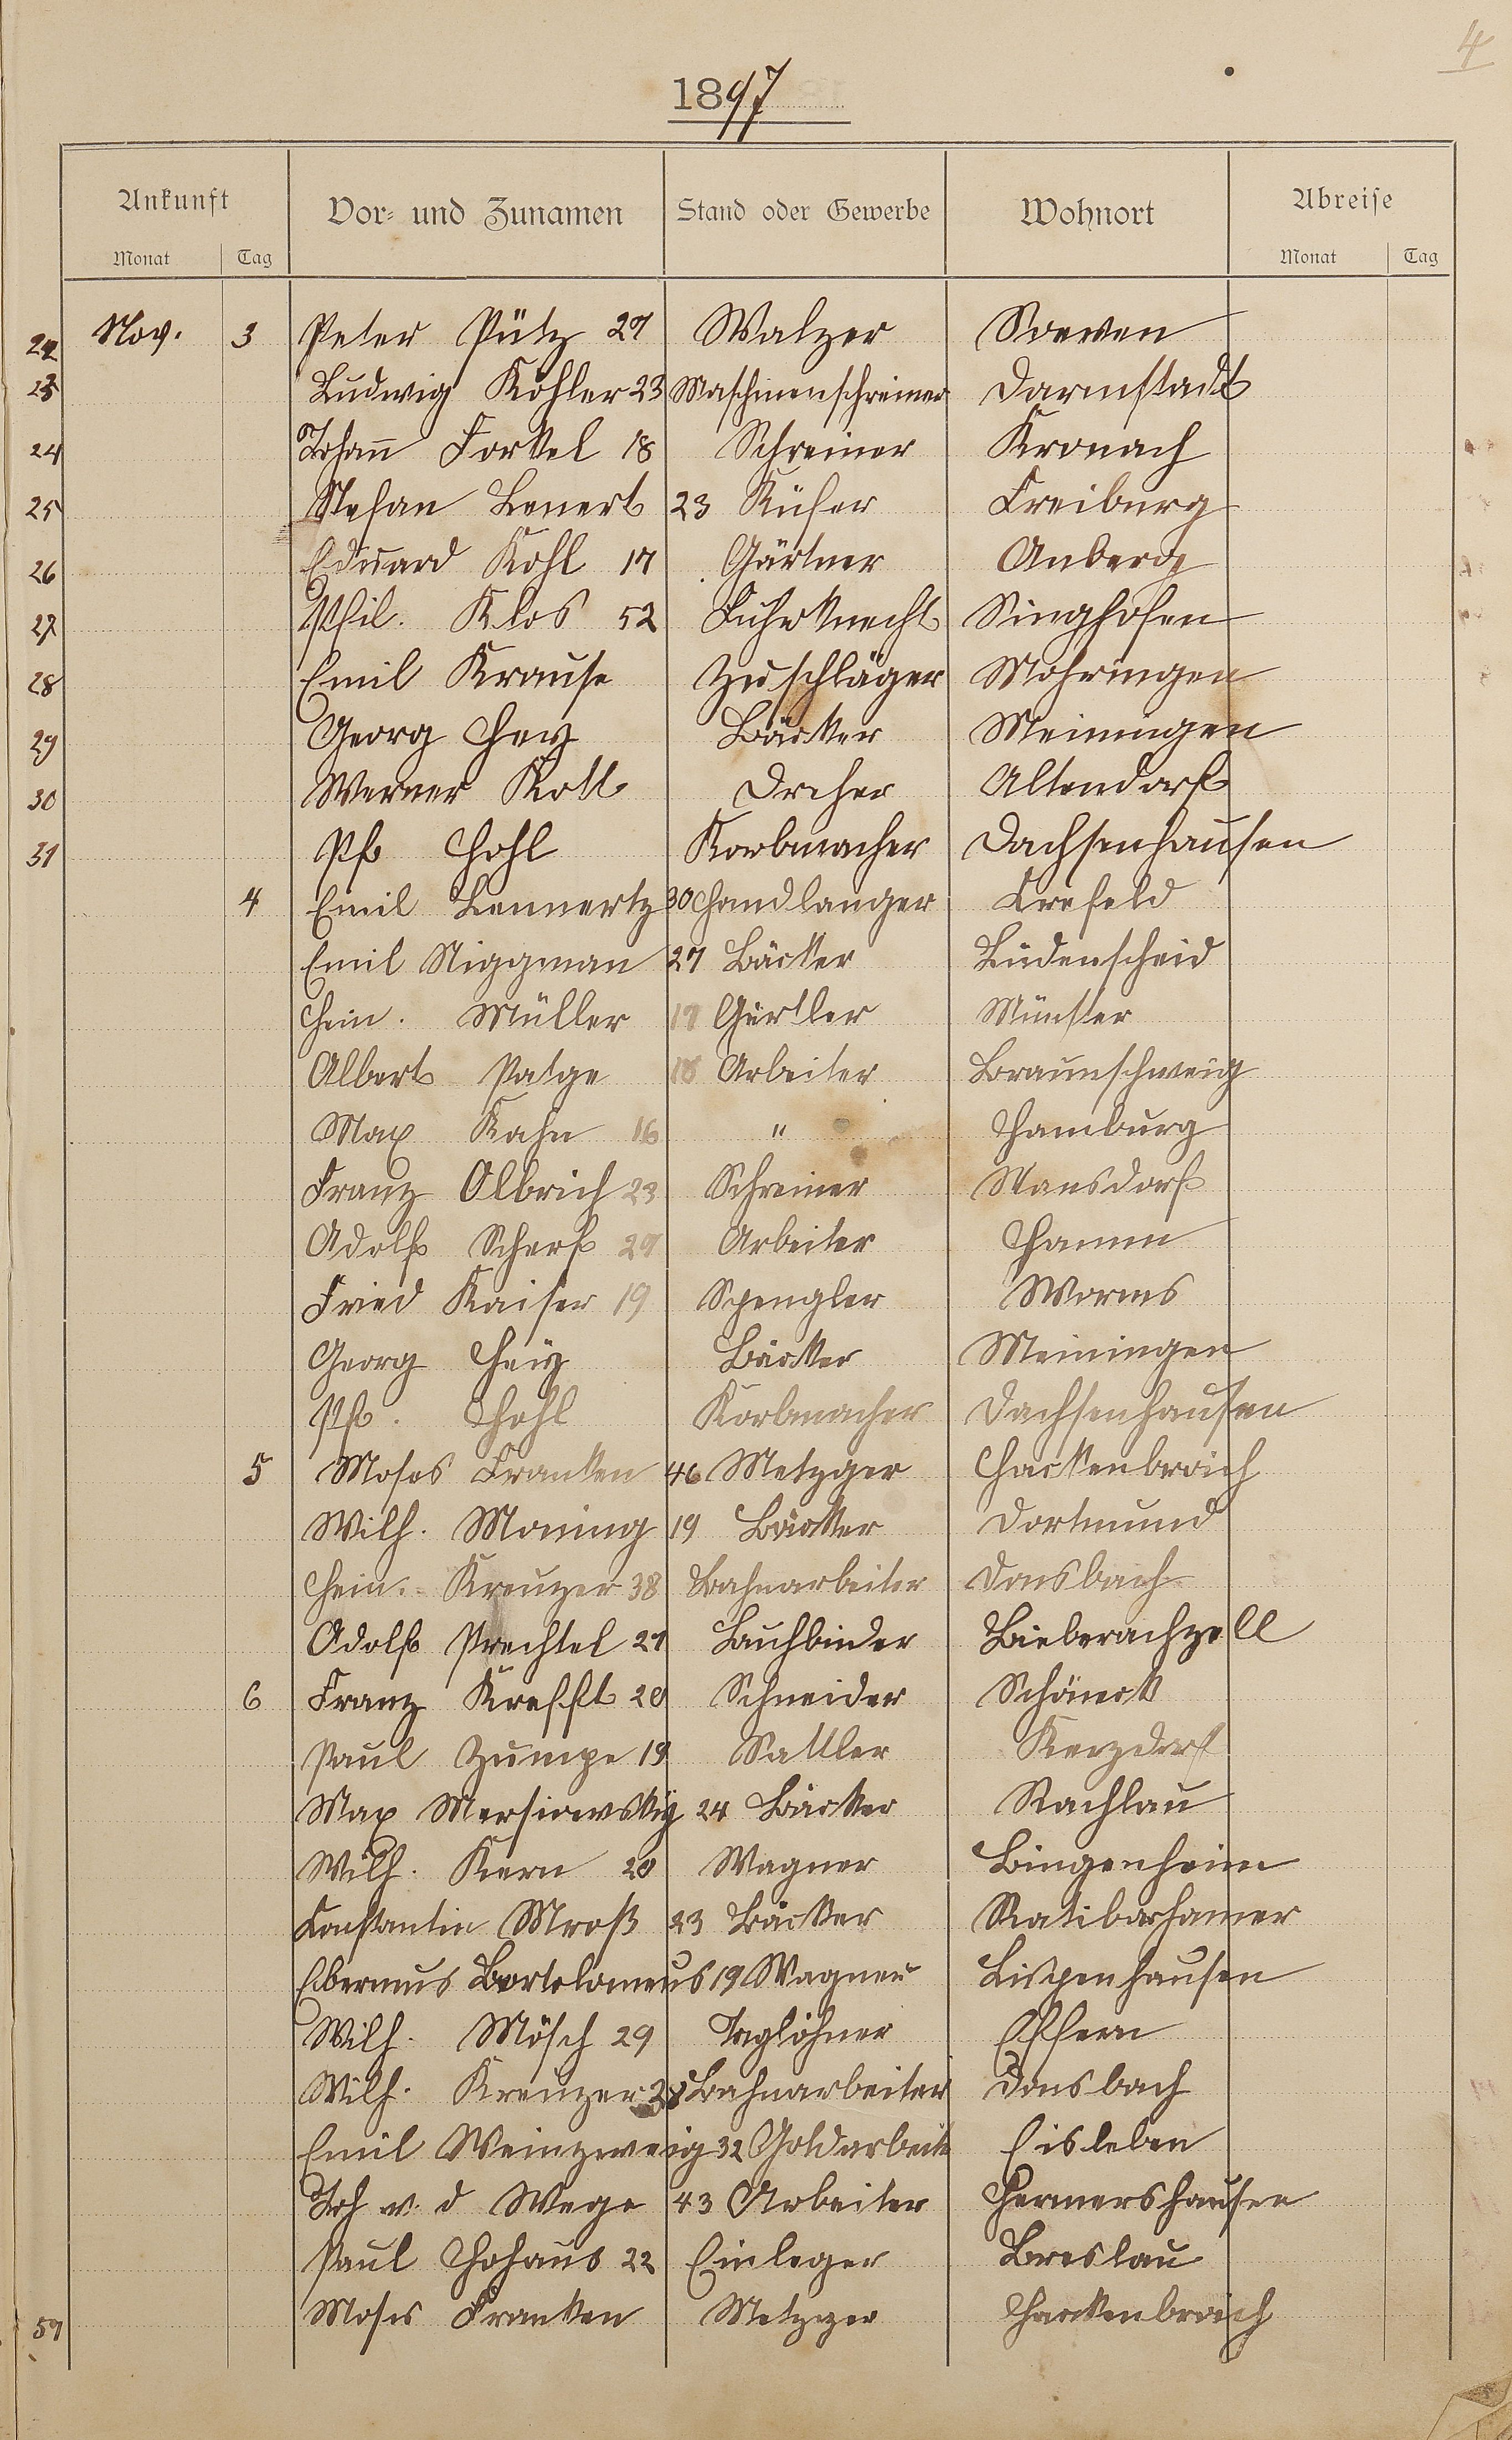 4
1897
Ankunft Vor- und Zunamen Stand oder Gewerbe Wohnort Abreise
Monat Tag Monat Tag
22 Nov. 3 Peter Pütz 27 Walzer Sorven
23 Ludwig Köhler 23 Maschinenschreiner Darmstadt
24 Johann Forkel 18 Schreiner Kronach
25 Stefan Lenert 23 Küfer Freiburg
26 Eduard Kohl 17 Gärtner Anberg
27 Phil. Klos 52 Fuhrknecht Singhofen
28 Emil Krause Zuschläger Mohringen
29 Georg Hey Bäcker Meiningen
30 Werner Kott Dreher Altendorf
31 Ph Hohl Korbmacher Dachsenhausen
4 Emil Lennertz 30 Handlanger Crefeld
Emil Niggman 27 Bäcker Lüdenscheid
Hein. Müller 17 Gürtler Münster
Albert Patge 18 Arbeiter Braunschweig
Max Kahn 16 " Hamburg
Franz Olbrich 23 Schreiner Stansdorf
Adolf Scharf 29 Arbeiter Hamm
Fried Kaiser 19 Spengler Worms
Georg Heÿ Bäcker Meiningen
Ph. Hohl Korbmacher Dachsenhausen
5 Moses Franken 46 Metzger Hackenbroich
Wilh. Moning 19 Bäcker Dortmund
Hein. Kreuzer 38 Bahnarbeiter Donsbach
Adolf Prechtel 21 Buchbinder Bieberachzell
6 Franz Krefft 20 Schneider Schöneck
Paul Zumpe 19 Sattler Kerzdorf
Max Mersiowskÿ 24 Bäcker Rachlau
Wilh. Kern 20 Wagner Bingenheim
Konstantin Mroß 23 Bäcker Ratiborhamer
Ebermus Bartolomeus 19 Wagner Lispenhausen
Wilh. Mösch 29 Taglöhner Effern
Wilh. Kreuzer 38 Bahnarbeiter Donsbach
Emil Weinzweig 32 Goldarbeite Eisleben
Joh v. d Wege 43 Arbeiter Hermershausen
Paul Hohaus 22 Einleger Breslau
57 Moses Franken Metzger Hackenbroich